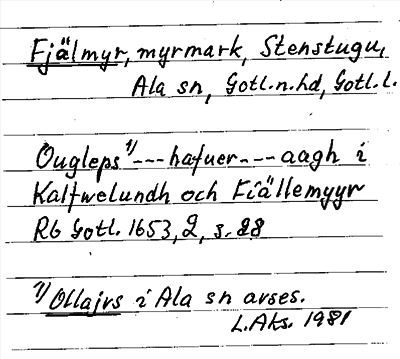 Fjälmyr, myrmark, Stenstugu,
Ala sn, Gotl.n.hd, Gotl.l.
Ougleps 1) --- hafuer --- aagh i
Kalfwelundh och Fiällemyyr
RB Gotl. 1653, 2, s. 28
1) Ollajvs i Ala sn avses.
L.Aks. 1981